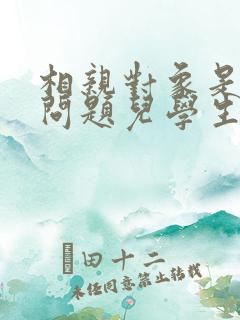 相親對象是
問題兒學生
田十二
未任同意禁止转载